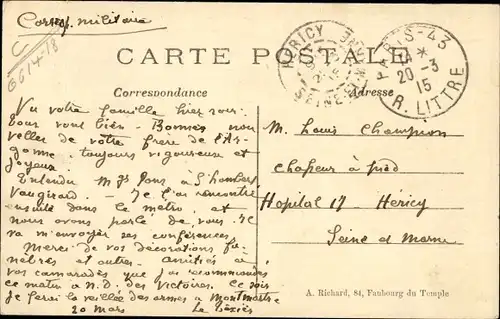 Corresp. militaire
C
6614-18
CARTE POSTALE
HÉRICY
SEINE-ET-MARNE
PARIS-43
20-3
15
R. LITTRE
Correspondance
Adresse
Vu votre famille hier soir.
Tous vous bien - Bonnes nou
velles de votre frère de l'Ar-
gonne. toujours vigoureux et
joyeux
Entendu Mgr
Vaugirard. - Je l'ai rencontré
ensuite dans le métro, et
nous avons parlé de vous. Je
va m'envoyer ses conférences.
Merci de vos décorations fu-
nèbres et autres. amitiés à
vos camarades que j'ai recommandés
ce matin à N.D. des Victoires. Ce soir
je ferai la veillée des armes à Montmartre
20 Mars
M. Louis Champion
Chasseur à pied
Hopital 17 Héricy
Seine et Marne
A. Richard, 84, Faubourg du Temple